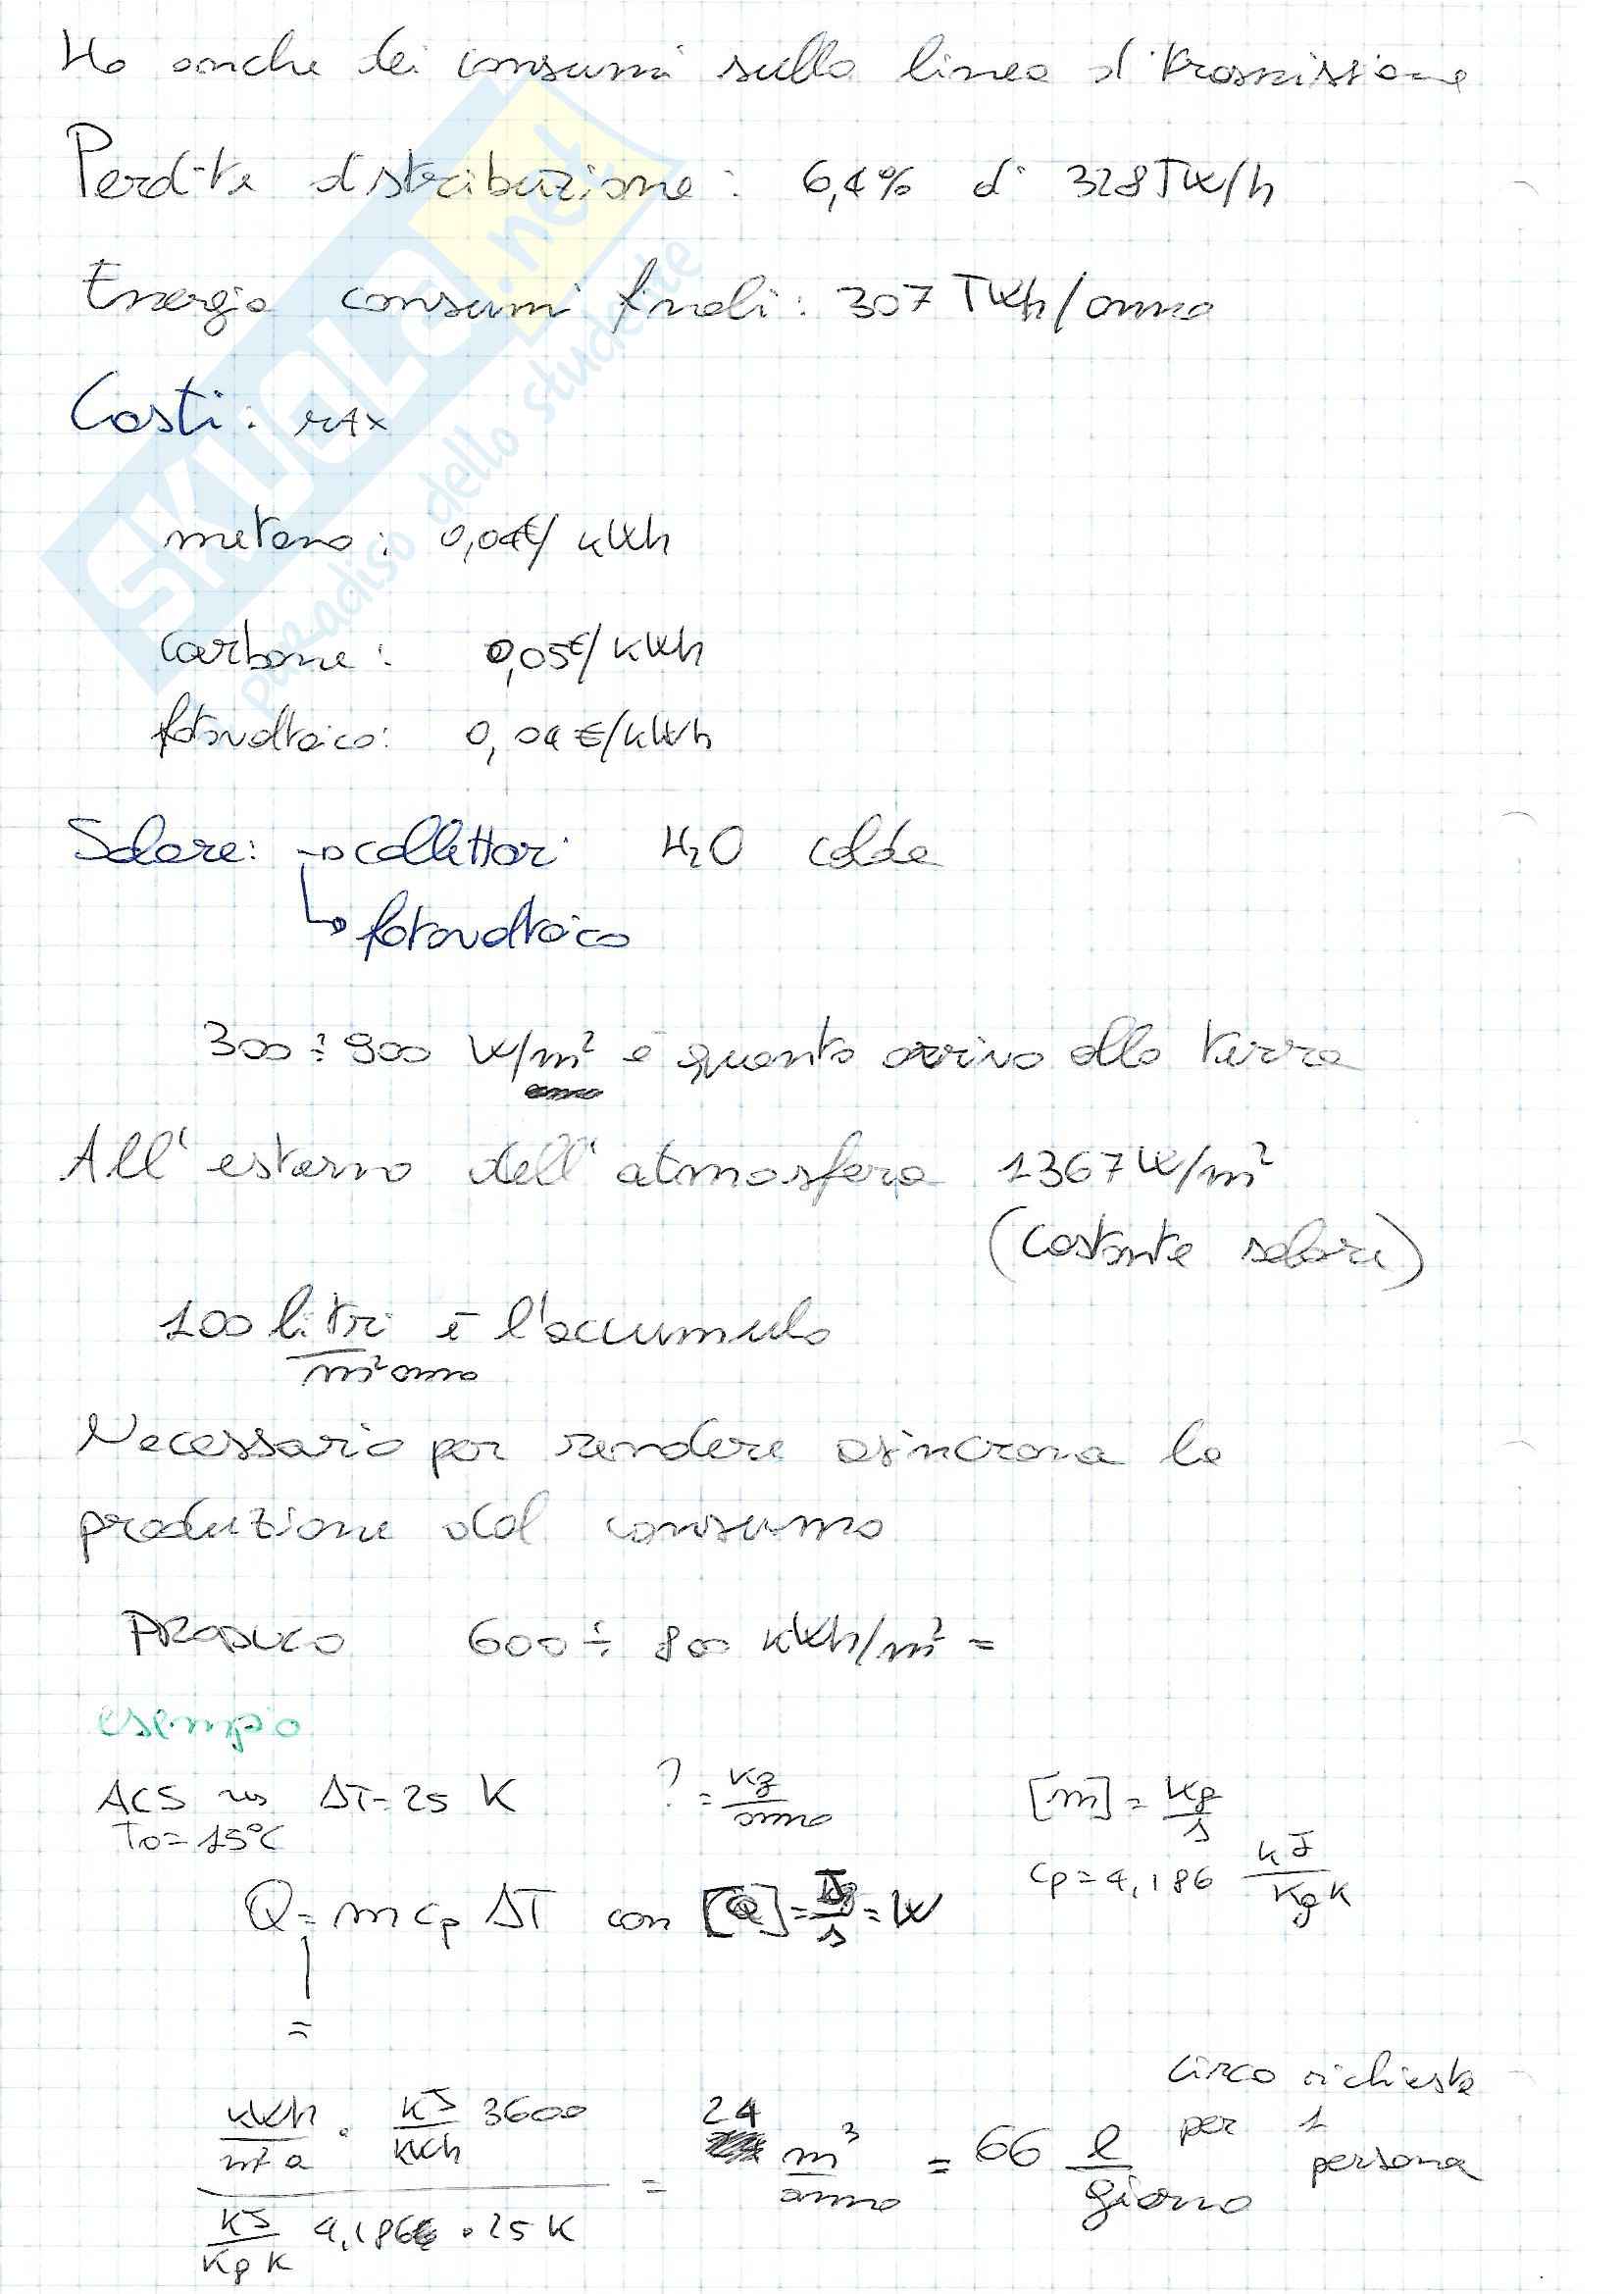 Ho anche dei consumi sulla linea di trasmissione
Perdite distribuzione: 6,4% di 328TW/h
Energia consumi finali: 307 TWh/anno
Costi: MAX
metano: 0,04€/kWh
carbone: 0,05€/kWh
fotovoltaico: 0,04€/kWh
Solare: → collettori H2O calda
↳ fotovoltaico
300÷900 W/m² è quanto arriva alla terra
All'esterno dell'atmosfera 1367W/m²
(costante solare)
100 litri/m² anno è l'accumulo
Necessario per rendere asincrona la
produzione dal consumo
PRODUCO 600÷800 kWh/m² =
esempio
ACS ΔT=25 K ? = kg/anno [m] = kg/s
T0=15°C
cp=4,186 kJ/kg K
Q = m cp ΔT con [Q] = J/s = W
=
circa richiesta
per 1
persona
kWh/m² a · kJ/kWh 3600
24 m³/anno = 66 l/giorno
kJ/kg K 4,186 · 25 K
SKUOLA.net
paradiso dello studente